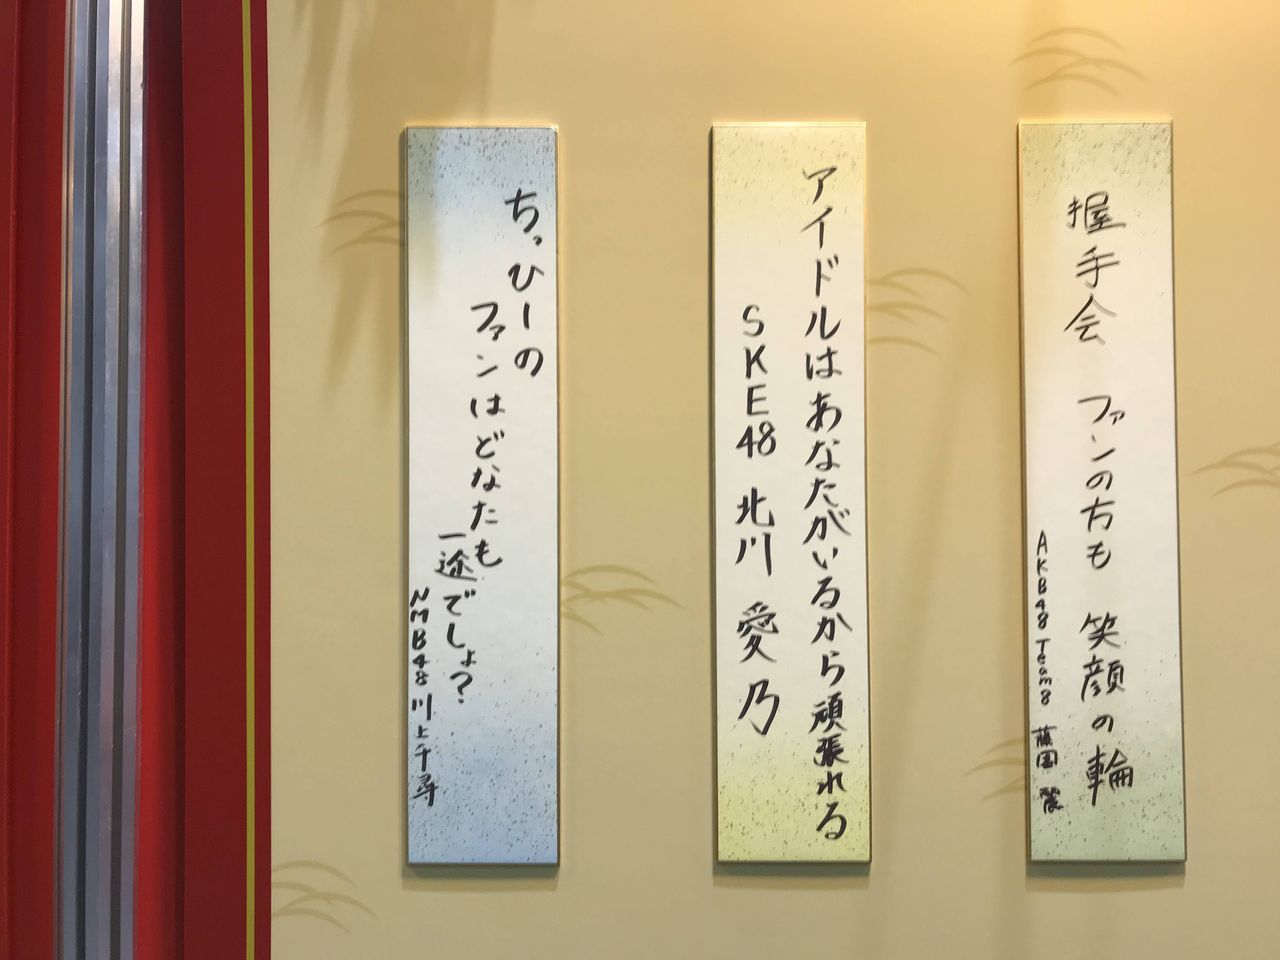 握手会　ファンの方も　笑顔の輪
AKB48 Team8　藤園　麗
アイドルはあなたがいるから頑張れる
SKE48　北川　愛乃
ちっひーの
ファンはどなたも
一途でしょ？
NMB48 川上千尋